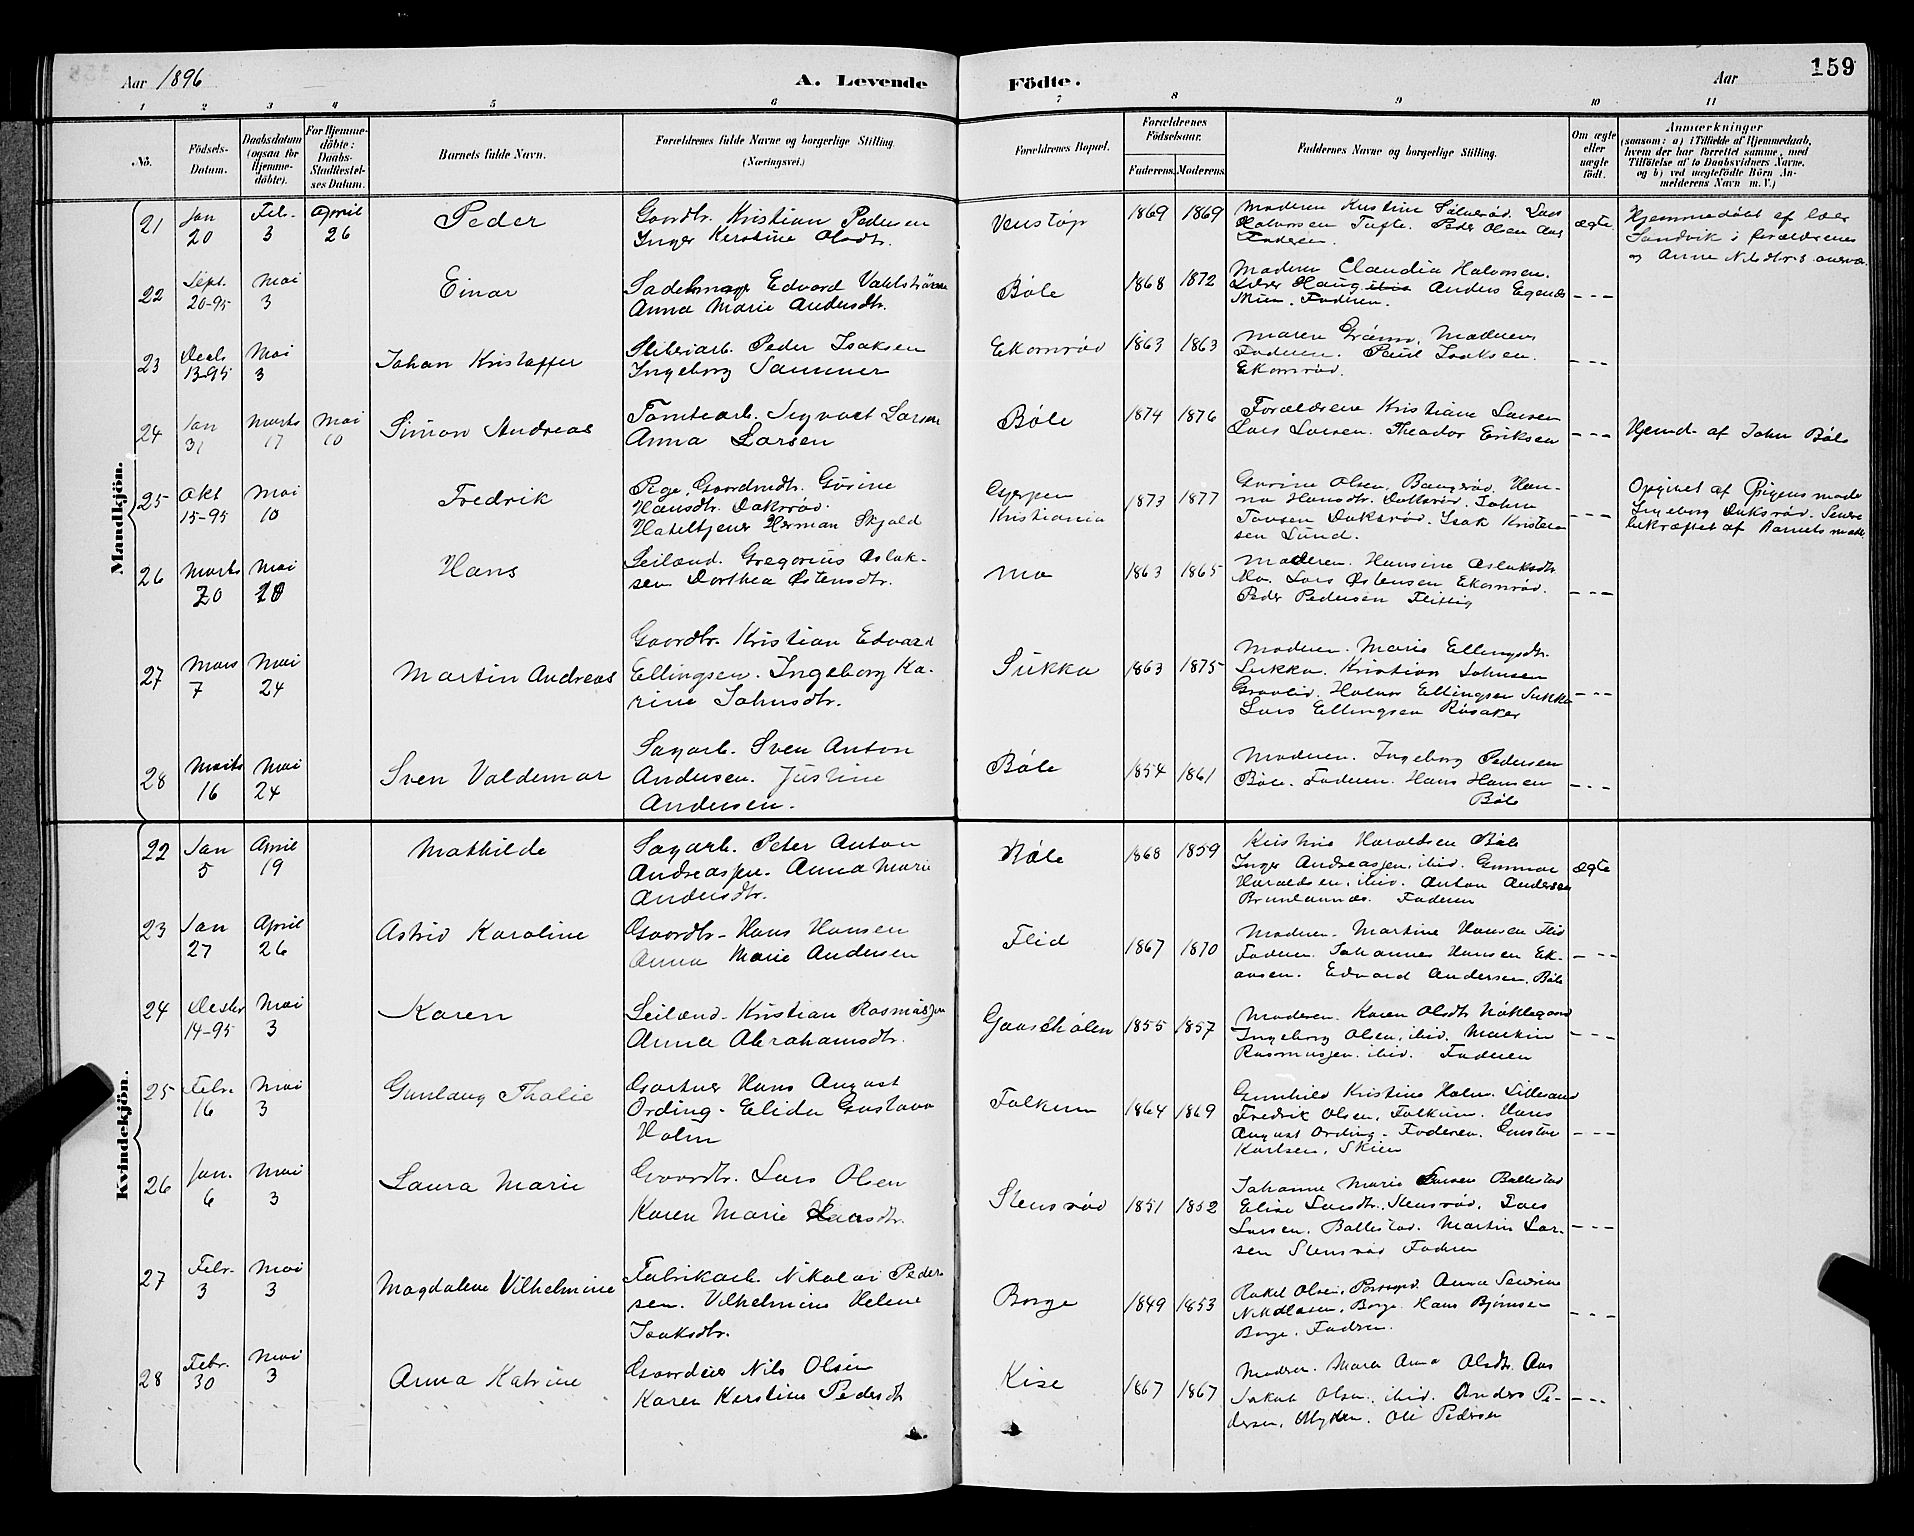 Aar 1896 A. Levende Födte. Aar 159
1 2 3 4 5 6 7 8 9 10 11
No.
Födsels-Datum.
Daabsdatum (ogsaa for Hjemme-döbte).
For Hjemme-döbte: Daabs-Stadfæstelses Datum.
Barnets fulde Navn.
Forældrenes fulde Navne og borgerlige Stilling (Næringsvei.)
Forældrenes Bopæl.
Forældrenes Födselsaar. Faderens Moderens
Faddernes Navne og borgerlige Stilling.
Om ægte eller uægte födt.
Anmærkninger
(saasom: a) i Tilfælde af Hjemmedaab,
hvem der har forrettet samme, med
Tilföielse af to Daabsvidners Navne.
og b) ved uægtefödte Börn An-
melderens Navn m. V.)
Mandkjön.
21 Jan 20 Feb. 3 April 26 Peder
Gaardbr. Kristian Pedersen
Inger Kerstine Olsdtr.
Venstøp 1869 1869
Moderen Kristine Sølverød. Lars
Halvorsen Tufte. Peder Olsen Aas
Faderen.
ægte
Hjemmedøbt af lær
Sandvik i forældrenes
og Anne Nilsdtrs overvær
22 Sept. 20-95 Mai 3 Einar
Sadelmager Edvard Vahlstrøm
Anna Marie Andersdtr.
Bøle 1868 1872
Moderen Claudia Halvorsen.
Haug Anders
Skien. Faderen.
- - -
23 Decb 13-95 Mai 3 Johan Kristoffer
Sliberiarb. Peder Isaksen
Ingeborg Sammer
Ekornrød 1863 1863
Maren Moderen
Faderen. Paul Isaksen.
Ekornrød.
- - -
24 Jan 31 Marts 17 Mai 10 Simon Andreas
Tomtearb. Sigvart Larsen
Anna Larsen
Bøle 1874 1876
Forældrene Kristiane Larsen
Lars Larsen. Theodor Eriksen
- - -
Hjemd. af John Bøle
25 Okt 15-95 Mai 10 Fredrik
Pige, Gaardmdtr. Gurine
Hansdtr. Doksrød.
Hoteltjener Herman Skjold
Gjerpen
Kristiania
1873 1877
Gurine Olsen, Bangerød. Han-
na Hansdtr. Doksrød. John
Doksrød. Isak Kristen
sen Lund.
- - -
Opgivet af Pigens moder
Ingeborg Doksrød. Senere
bekræftet af Barnets moder
26 Marts 20 Mai 10 Hans
Leilænd. Gregorius Aslak-
sen Dorthea Østensdtr.
Mo 1863 1865
Moderen. Hansine Aslaksdtr
Mo. Lars Østensen Ekornrød.
Peder Pedersen Flittig
- - -
27 Mars 7 Mai 24 Martin Andreas
Gaardbr. Kristian Edvard
Ellingsen. Ingeborg Ka-
rine Johnsdtr.
Sukka 1863 1875
Moderen. Marie Ellingsdtr.
Sukka. Kristian Johnsen
Graalid. Halvor Ellingsen Sukka
Lars Ellingsen Røsaker
- - -
28 Marts 16 Mai 24 Sven Valdemar
Sagarb. Sven Anton
Andersen. Justine
Andersen.
Bøle 1854 1861
Moderen. Ingeborg Pedersen
Bøle. Faderen. Hans Hansen
Bøle
- - -
Kvindekjön.
22 Jan 5 April 19 Mathilde
Sagarb. Peter Anton
Andreassen. Anna Marie
Andersdtr.
Bøle 1868 1859
Kristine Haraldsen Bøle
Inger Andreassen, ibid. Gunnar
Haraldsen, ibid. Anton Andersen
Brunlannæs. Faderen
ægte
23 Jan 27 April 26 Astrid Karoline
Gaardbr- Hans Hansen
Anna Marie Andersen
Flid 1867 1870
Moderen- Martine Hansen Flid
Faderen. Johannes Hansen Ek-
ansen. Edvard Andersen, Bøle
- - -
24 Decbr 14-95 Mai 3 Karen
Leilænd- Kristian Rasmussen
Anna Abrahamsdtr.
Gaasehølen 1855 1857
Moderen. Karen Olsdtr Nøklegaard
Ingeborg Olsen, ibid. Martin
Rasmussen, ibid. Faderen
- - -
25 Febr. 16 Mai 3 Gunlaug Thalie
Gartner Hans August
Ording- Elida Gustava
Holm
Falkum 1864 1869
Gunhild Kristine Holm. Lillesand
Fredrik Olsen, Falkum. Hans
August Ording- Faderen. Gustav
Karlsen, Skien
- - -
26 Jan. 6 Mai 3 Laura Marie
Gaardbr. Lars Olsen
Karen Marie Larsdtr.
Stensrød 1851 1852
Johanne Marie Larsen Ballestad
Elise Larsdtr. Stensrød. Lars
Larsen, Ballestad. Martin Lar-
sen Stensrød Faderen
- - -
27 Febr. 3 Mai 3 Magdalene Vilhelmine
Fabrikarb. Nikolai Peder
sen. Vilhelmine Helene
Isaksdtr.
Borge 1849 1853
Rakel Olsen, Porsgrd. Anna Severine
Nikolasen, Borge. Hans Bjørnsen
Borge. Faderen.
- - -
28 Febr. 30 Mai 3 Anna Katrine
Gaardeier Nils Olsen
Karen Kerstine Pedersdtr
Kise 1867 1867
Moderen. Maren Anna Olsdtr. Aas
Jakob Olsen, ibid. Anders Pe-
dersen, Myhren. Ole Pedersen
- - -